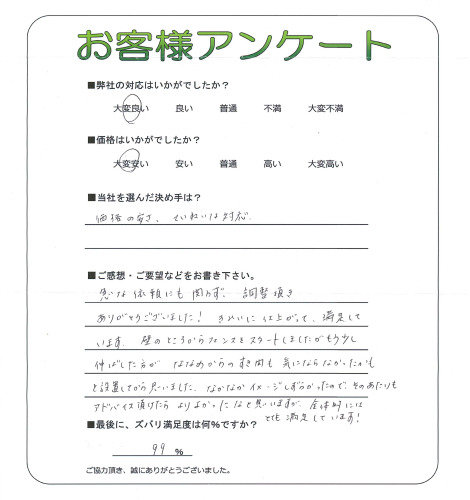 お客様アンケート
■弊社の対応はいかがでしたか？
大変良い　良い　普通　不満　大変不満
■価格はいかがでしたか？
大変安い　安い　普通　高い　大変高い
■当社を選んだ決め手は？
価格の安さ、ていねいな対応
■ご感想・ご要望などをお書き下さい。
急な依頼にも関わず、調整頂き
ありがとうございました！きれいに仕上がって、満足して
います。壁のところからフェンスをスタートしましたがもう少し
伸ばした方が ななめからのすき間も 気にならなかったかも
と設置してから思いました、なかなかイメージしずらかったので、そのあたりも
アドバイス頂けたら よりよかったなと思いますが、全体的には
とても満足しています！
■最後に、ズバリ満足度は何％ですか？
99 ％
ご協力頂き、誠にありがとうございました。